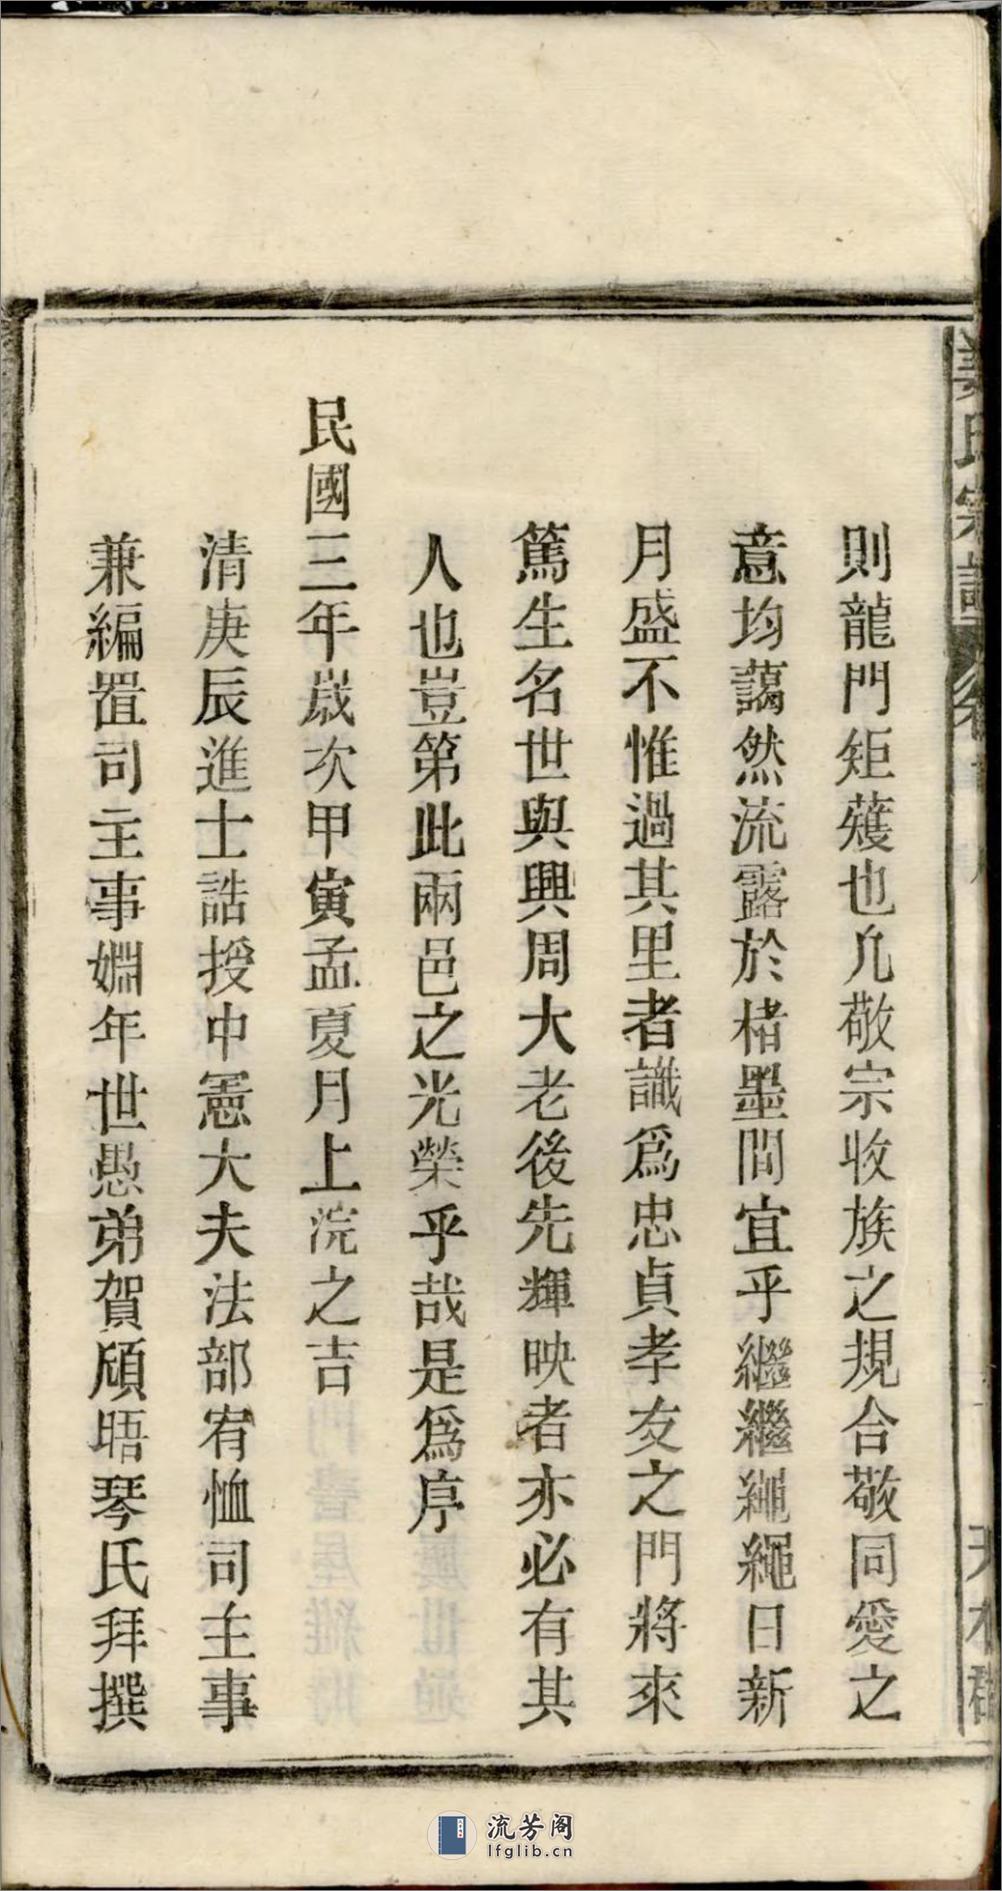 則龍門矩蒦也凡敬宗收族之規合敬同愛之
意均藹然流露於楮墨間宜乎繼繼繩繩日新
月盛不惟過其里者識爲忠貞孝友之門將來
篤生名世與興周大老後先輝映者亦必有其
人也豈第此兩邑之光榮乎哉是爲序
民國三年歲次甲寅孟夏月上浣之吉
清庚辰進士誥授中憲大夫法部宥恤司主事
兼編置司主事姻年世愚弟賀頎晤琴氏拜撰
流芳阁
lfglib.cn